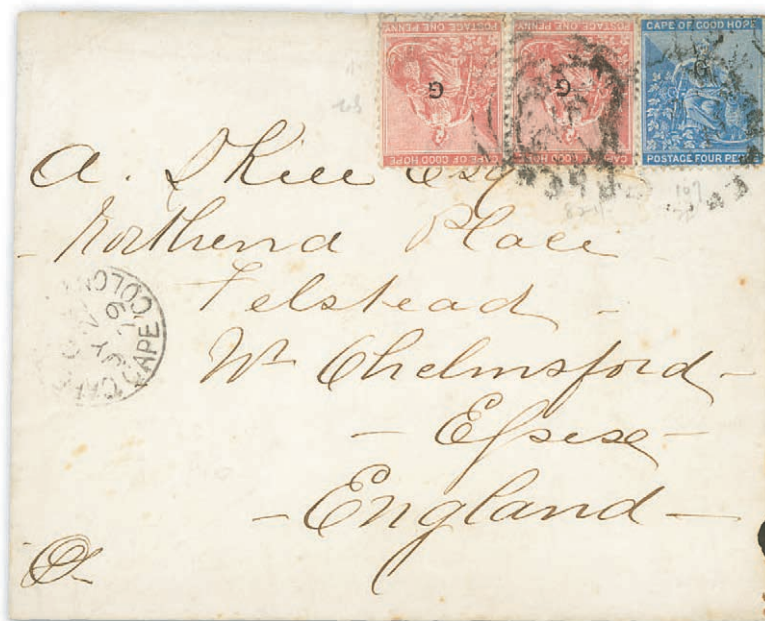 POSTAGE ONE PENNY
G
CAPE OF GOOD HOPE
POSTAGE ONE PENNY
G
CAPE OF GOOD HOPE
CAPE OF GOOD HOPE
POSTAGE FOUR PENCE
A. Skill Esq
Northend Place
Felstead -
Nr Chelmsford -
- Essex -
- England -
CAPE COLONY